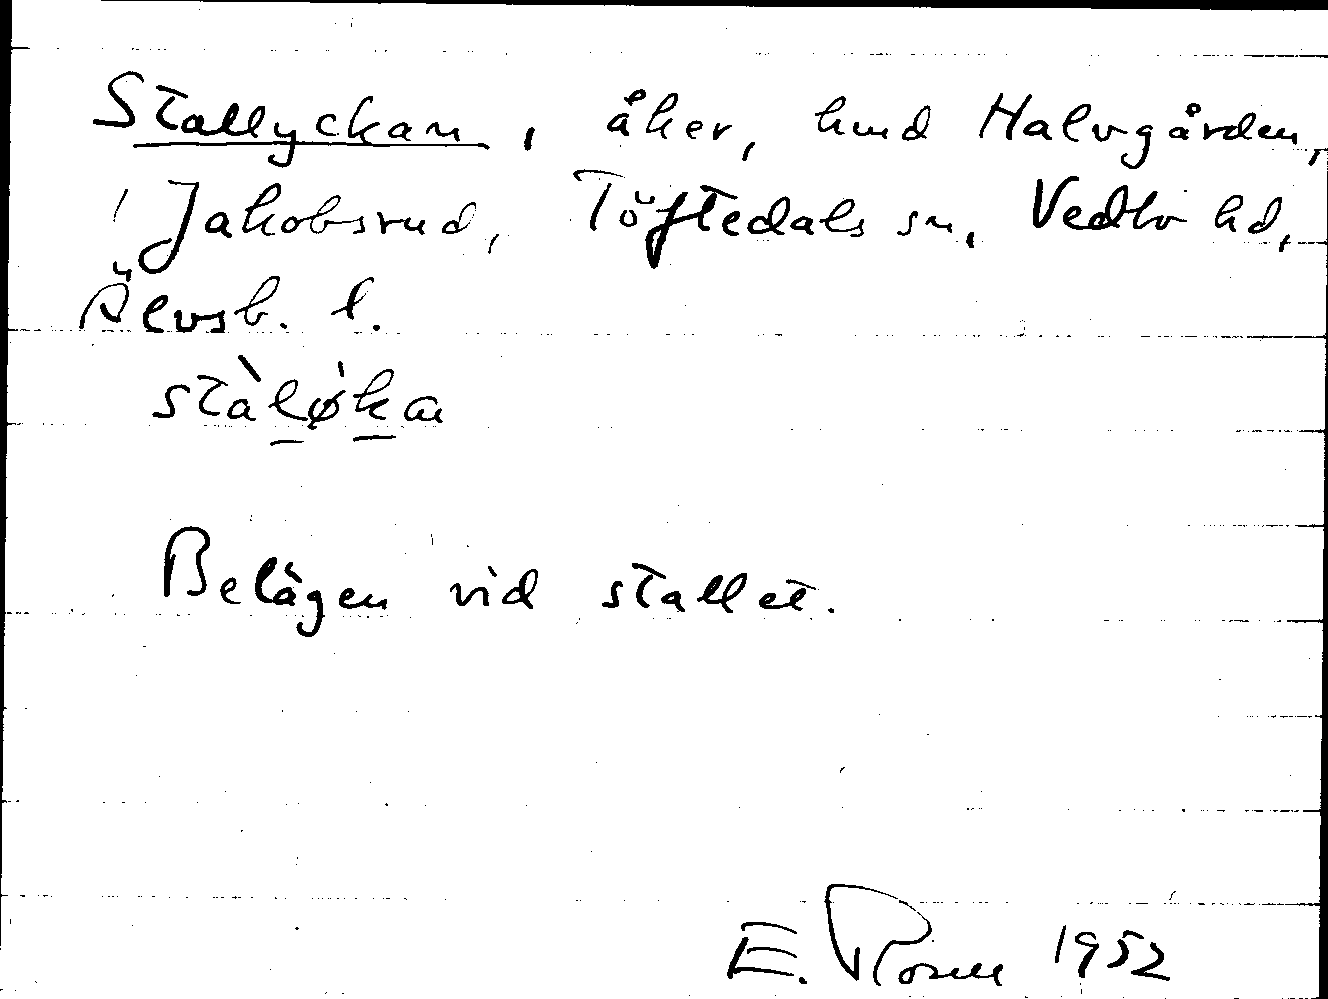 Stallyckan, åker, hmd Halvgården,
i Jakobsrud, Töftedals sn, Vedbo hd,
Älvsb. l.
stàl̠øk̠a
Belägen vid stallet.
E. Rosell 1952